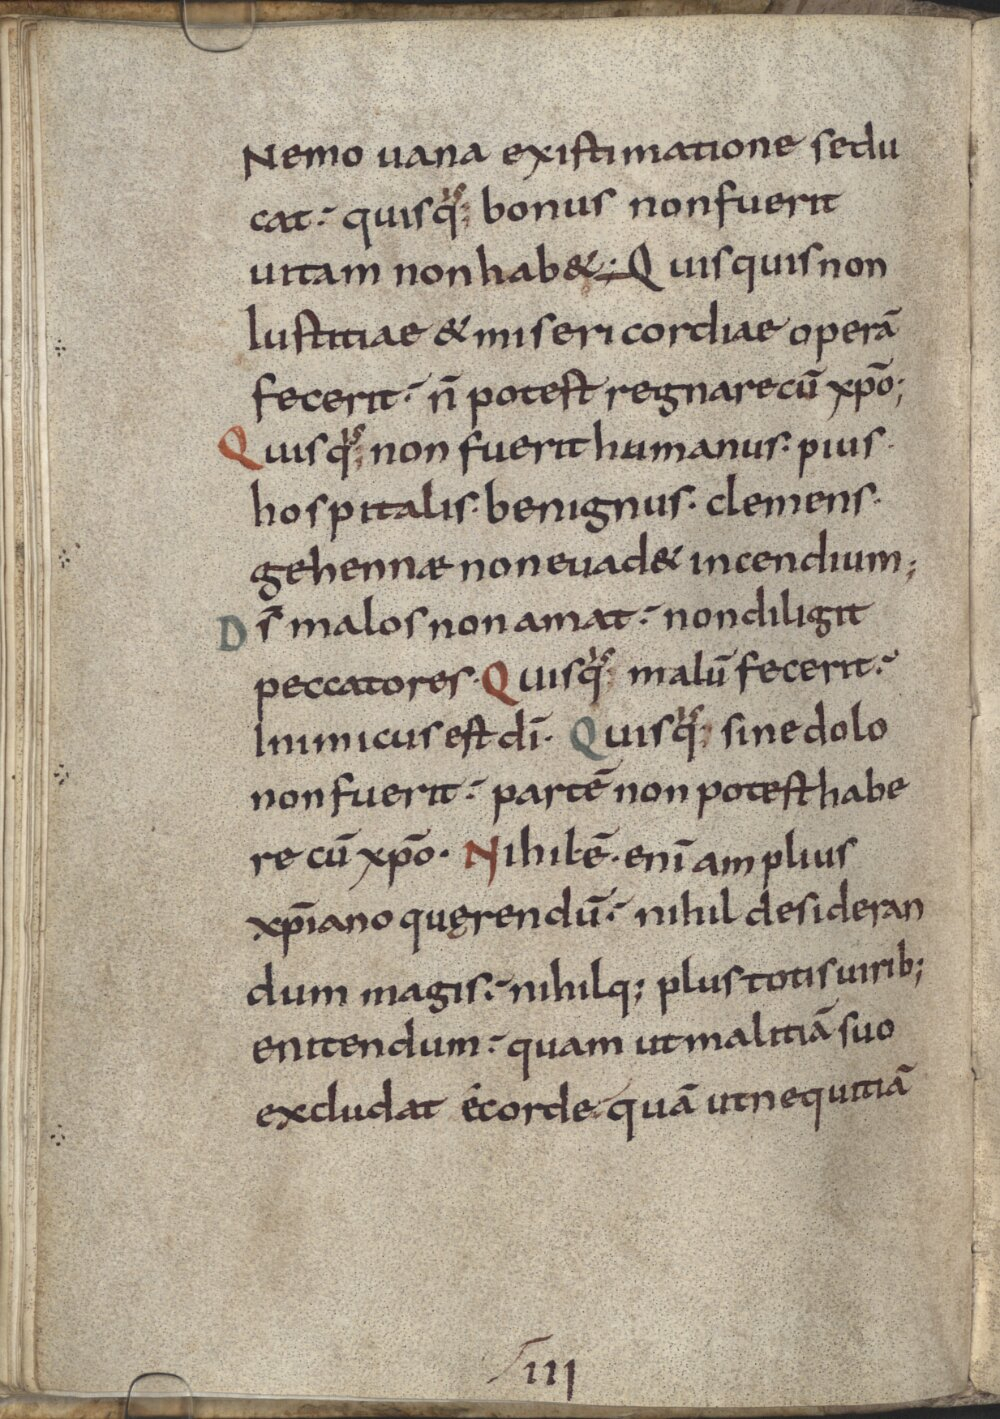 Nemo uana existimatione sedu
cat· quisq;s bonus non fuerit
uitam non hab&; Quisquis non
Iustitiae & misericordiae operā
fecerit· n̄ potest regnare cū xp̄o;
Quisq;s non fuerit humanus· pius·
hospitalis· benignus· clemens·
gehennæ non euad& incendium;
Ds̄ malos non amat· non diligit
peccatores· Quisq;s malū fecerit·
Inimicus est dī· Quisq;s sine dolo
non fuerit· partē non potest habe
re cū xp̄o· Nihil· ē· enī amplius
xp̄iano quęrendū· nihil desideran
dum magis· nihilq; plus totis uirib;
enitendum· quam ut malitiā suo
excludat é corde· quā ut nequitiā
III